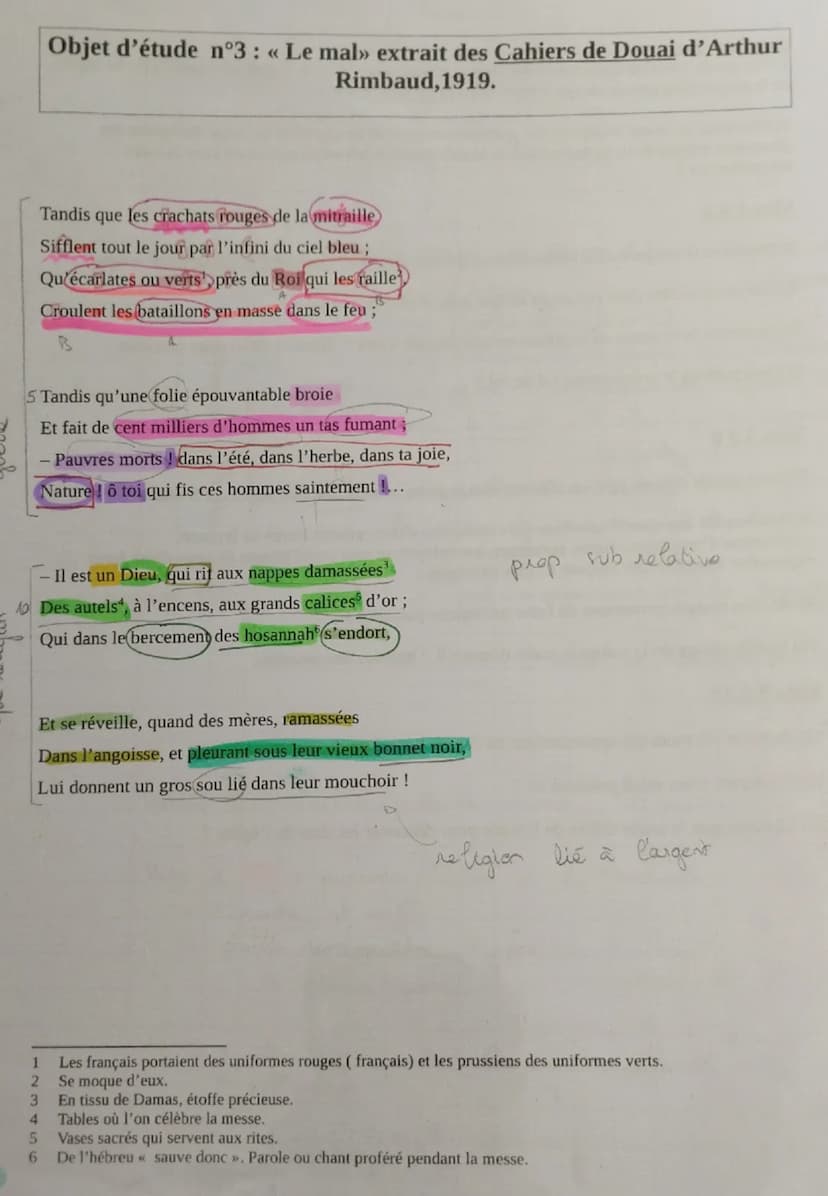 Objet d'étude n°3 : « Le mal» extrait des Cahiers de Douai d'Arthur
Rimbaud,1919.
Tandis que les crachats rouges de la mitraille
Sifflent tout le jour par l'infini du ciel bleu ;
Qu'écarlates ou verts¹, près du Roi qui les raille²,
Croulent les bataillons en masse dans le feu ;
A
B
B
A
5 Tandis qu'une folie épouvantable broie
Et fait de cent milliers d'hommes un tas fumant ;
– Pauvres morts ! dans l'été, dans l'herbe, dans ta joie,
Nature ! ô toi qui fis ces hommes saintement !...
– Il est un Dieu, qui rit aux nappes damassées³
prop sub relative
10 Des autels⁴, à l'encens, aux grands calices⁵ d'or ;
Qui dans le bercement des hosannah⁶ s'endort,
Et se réveille, quand des mères, ramassées
Dans l'angoisse, et pleurant sous leur vieux bonnet noir,
Lui donnent un gros sou lié dans leur mouchoir !
religion lié à l'argent
1 Les français portaient des uniformes rouges ( français) et les prussiens des uniformes verts.
2 Se moque d'eux.
3 En tissu de Damas, étoffe précieuse.
4 Tables où l'on célèbre la messe.
5 Vases sacrés qui servent aux rites.
6 De l'hébreu « sauve donc ». Parole ou chant proféré pendant la messe.